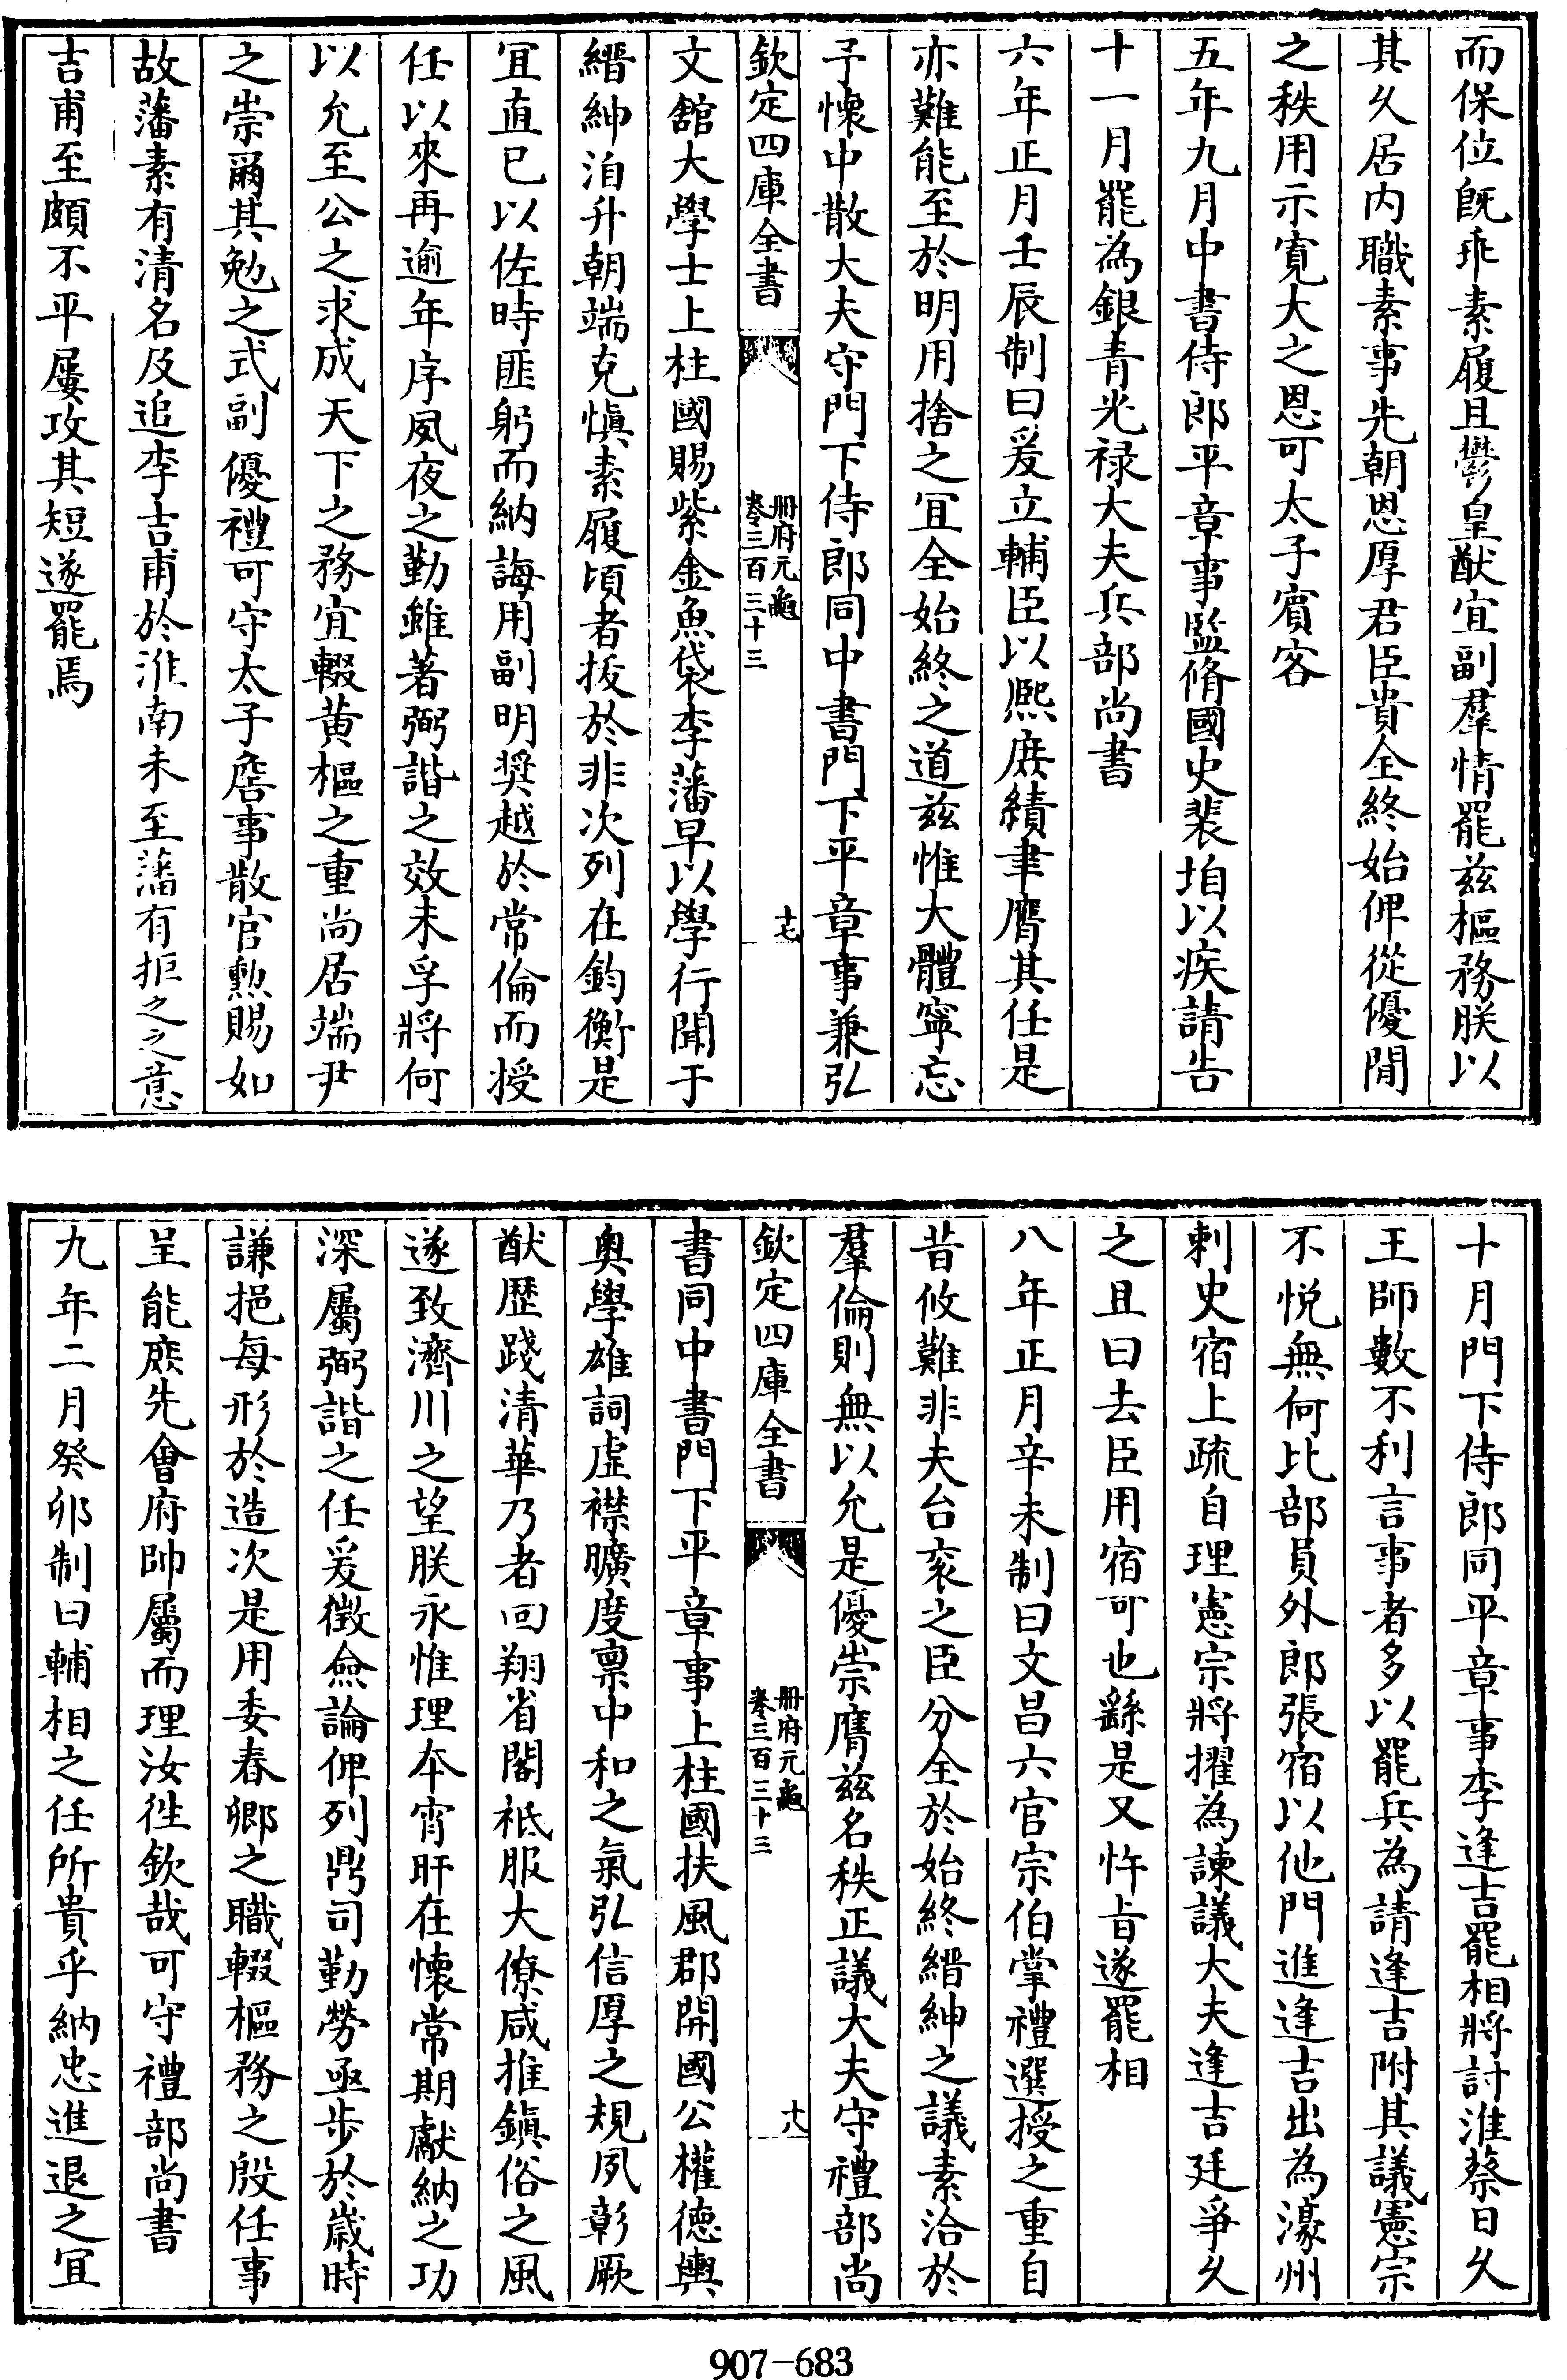 而保位既乖素履且鬱皇猷宜副羣情罷兹樞務朕以
其久居内職素事先朝恩厚君臣貴全終始俾從優閒
之秩用示寛大之恩可太子賓客
五年九月中書侍郎平章事監脩國史裴垍以疾請告
十一月罷為銀青光禄大夫兵部尚書
六年正月壬辰制曰爰立輔臣以熙庶績聿膺其任是
亦難能至於明用捨之宜全始終之道兹惟大體寧忘
予懷中散大夫守門下侍郎同中書門下平章事兼弘
欽定四庫全書
册府元龜
卷三百三十三
十七
文館大學士上柱國賜紫金魚袋李藩早以學行聞于
縉紳洎升朝端克慎素履頃者拔於非次列在鈞衡是
宜直已以佐時匪躬而納誨用副明奨越於常倫而授
任以來再逾年序夙夜之勤雖著弼諧之效未孚將何
以允至公之求成天下之務宜輟黄樞之重尚居端尹
之崇爾其勉之式副優禮可守太子詹事散官勲賜如
故藩素有清名及追李吉甫於淮南未至藩有拒之之意
吉甫至頗不平屢攻其短遂罷焉
十月門下侍郎同平章事李逢吉罷相將討淮蔡日久
王師數不利言事者多以罷兵為請逢吉附其議憲宗
不悦無何比部員外郎張宿以他門進逢吉出為濠州
刺史宿上疏自理憲宗將擢為諫議大夫逢吉廷爭久
之且曰去臣用宿可也繇是又忤旨遂罷相
八年正月辛未制曰文昌六官宗伯掌禮選授之重自
昔攸難非夫台衮之臣分全於始終縉紳之議素洽於
羣倫則無以允是優崇膺兹名秩正議大夫守禮部尚
欽定四庫全書
册府元龜
卷三百三十三
十八
書同中書門下平章事上柱國扶風郡開國公權德輿
奥學雄詞虚襟曠度禀中和之氣弘信厚之規夙彰厥
猷歴踐清華乃者回翔省閣祗服大僚咸推鎮俗之風
遂致濟川之望朕永惟理本宵旰在懷常期獻納之功
深屬弼諧之任爰徵僉論俾列鼎司勤勞亟步於歲時
謙挹每形於造次是用委春卿之職輟樞務之殷任事
呈能庶先會府帥屬而理汝徃欽哉可守禮部尚書
九年二月癸卯制曰輔相之任所貴乎納忠進退之宜
907-683